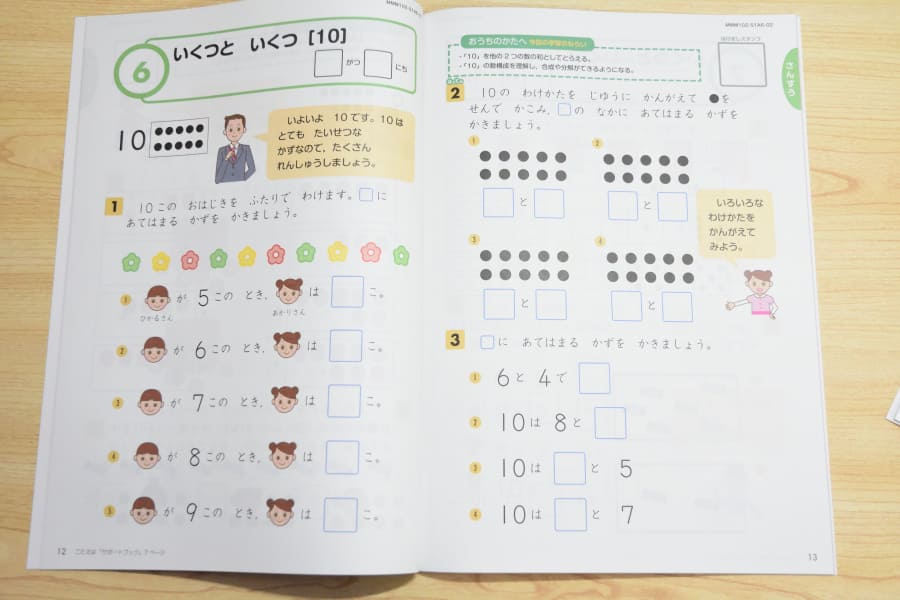 6
いくつと いくつ [10]
がつ
にち
10
いよいよ 10です。10は
とても たいせつな
かずなので、たくさん
れんしゅうしましょう。
1 10この おはじきを ふたりで わけます。□に
あてはまる かずを かきましょう。
1 が 5この とき、 は □ こ。
ひかるさん
あかりさん
2 が 6この とき、 は □ こ。
3 が 7この とき、 は □ こ。
4 が 8この とき、 は □ こ。
5 が 9この とき、 は □ こ。
12 こたえは「サポートブック」7ページ
MMM102-S1A6-02
おうちのかたへ 今回の学習のねらい
・「10」を他の2つの数の和としてとらえる。
・「10」の数構成を理解し、合成や分解ができるようになる。
はげましスタンプ
さんすう
2 10の わけかたを じゆうに かんがえて ●を
せんで かこみ、□の なかに あてはまる かずを
かきましょう。
1
□ と □
2
□ と □
3
□ と □
4
□ と □
いろいろな
わけかたを
かんがえて
みよう。
3 □に あてはまる かずを かきましょう。
1 6と 4で □
2 10は 8と □
3 10は □ と 5
4 10は □ と 7
13